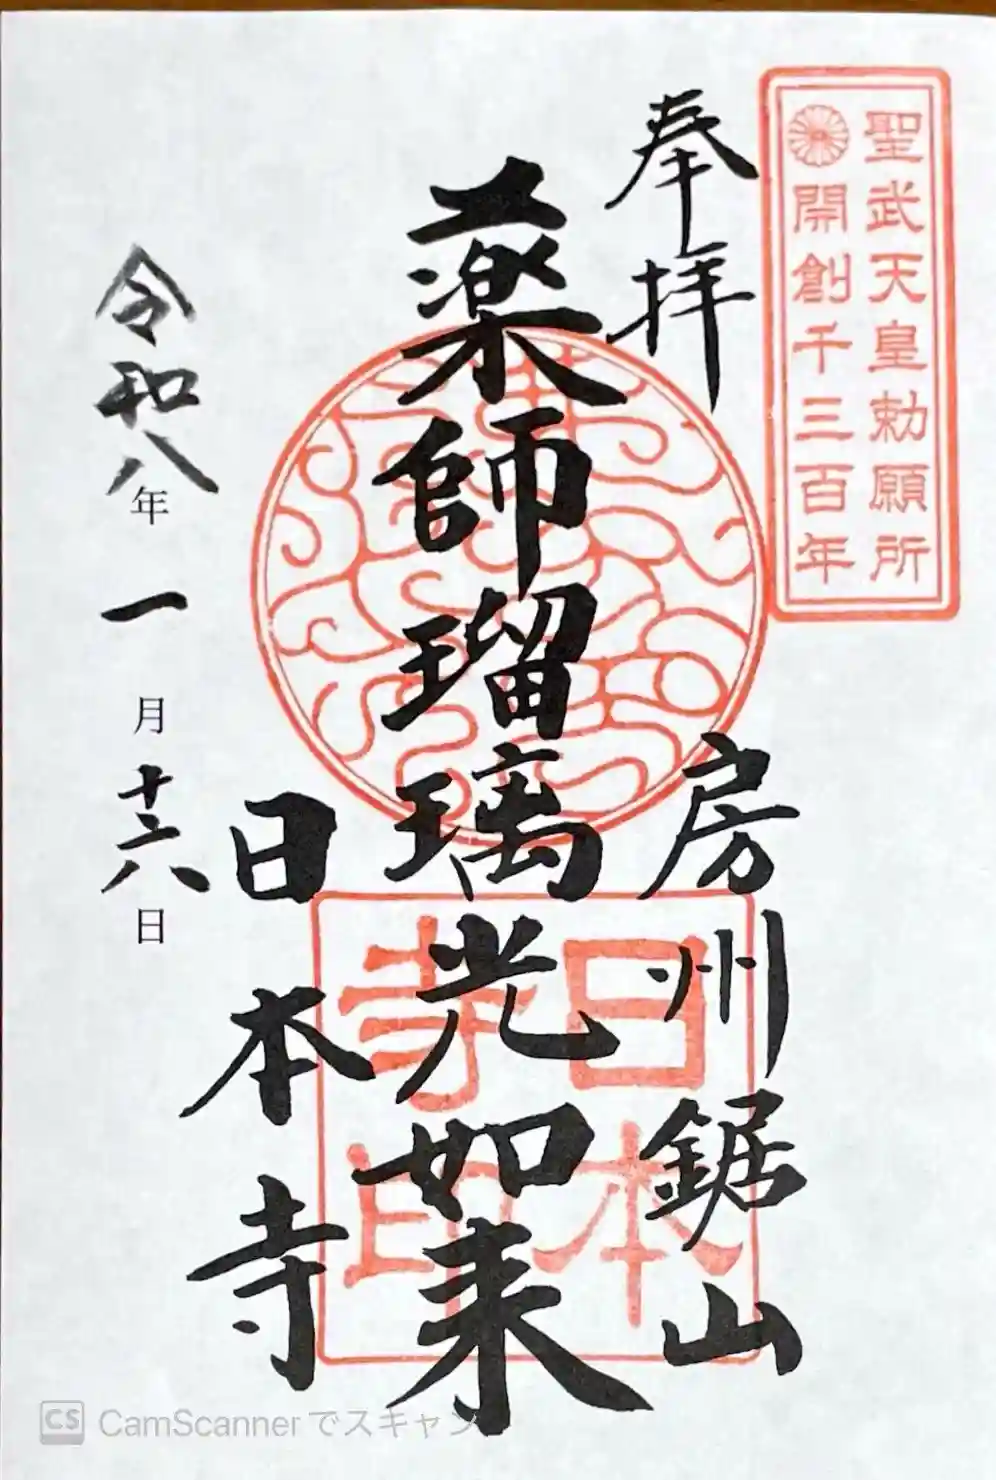 聖武天皇勅願所
開創千三百年
奉拝
房州鋸山
薬師瑠璃光如来
日本
寺印
日本寺
令和八年一月十六日
CS CamScannerでスキャン